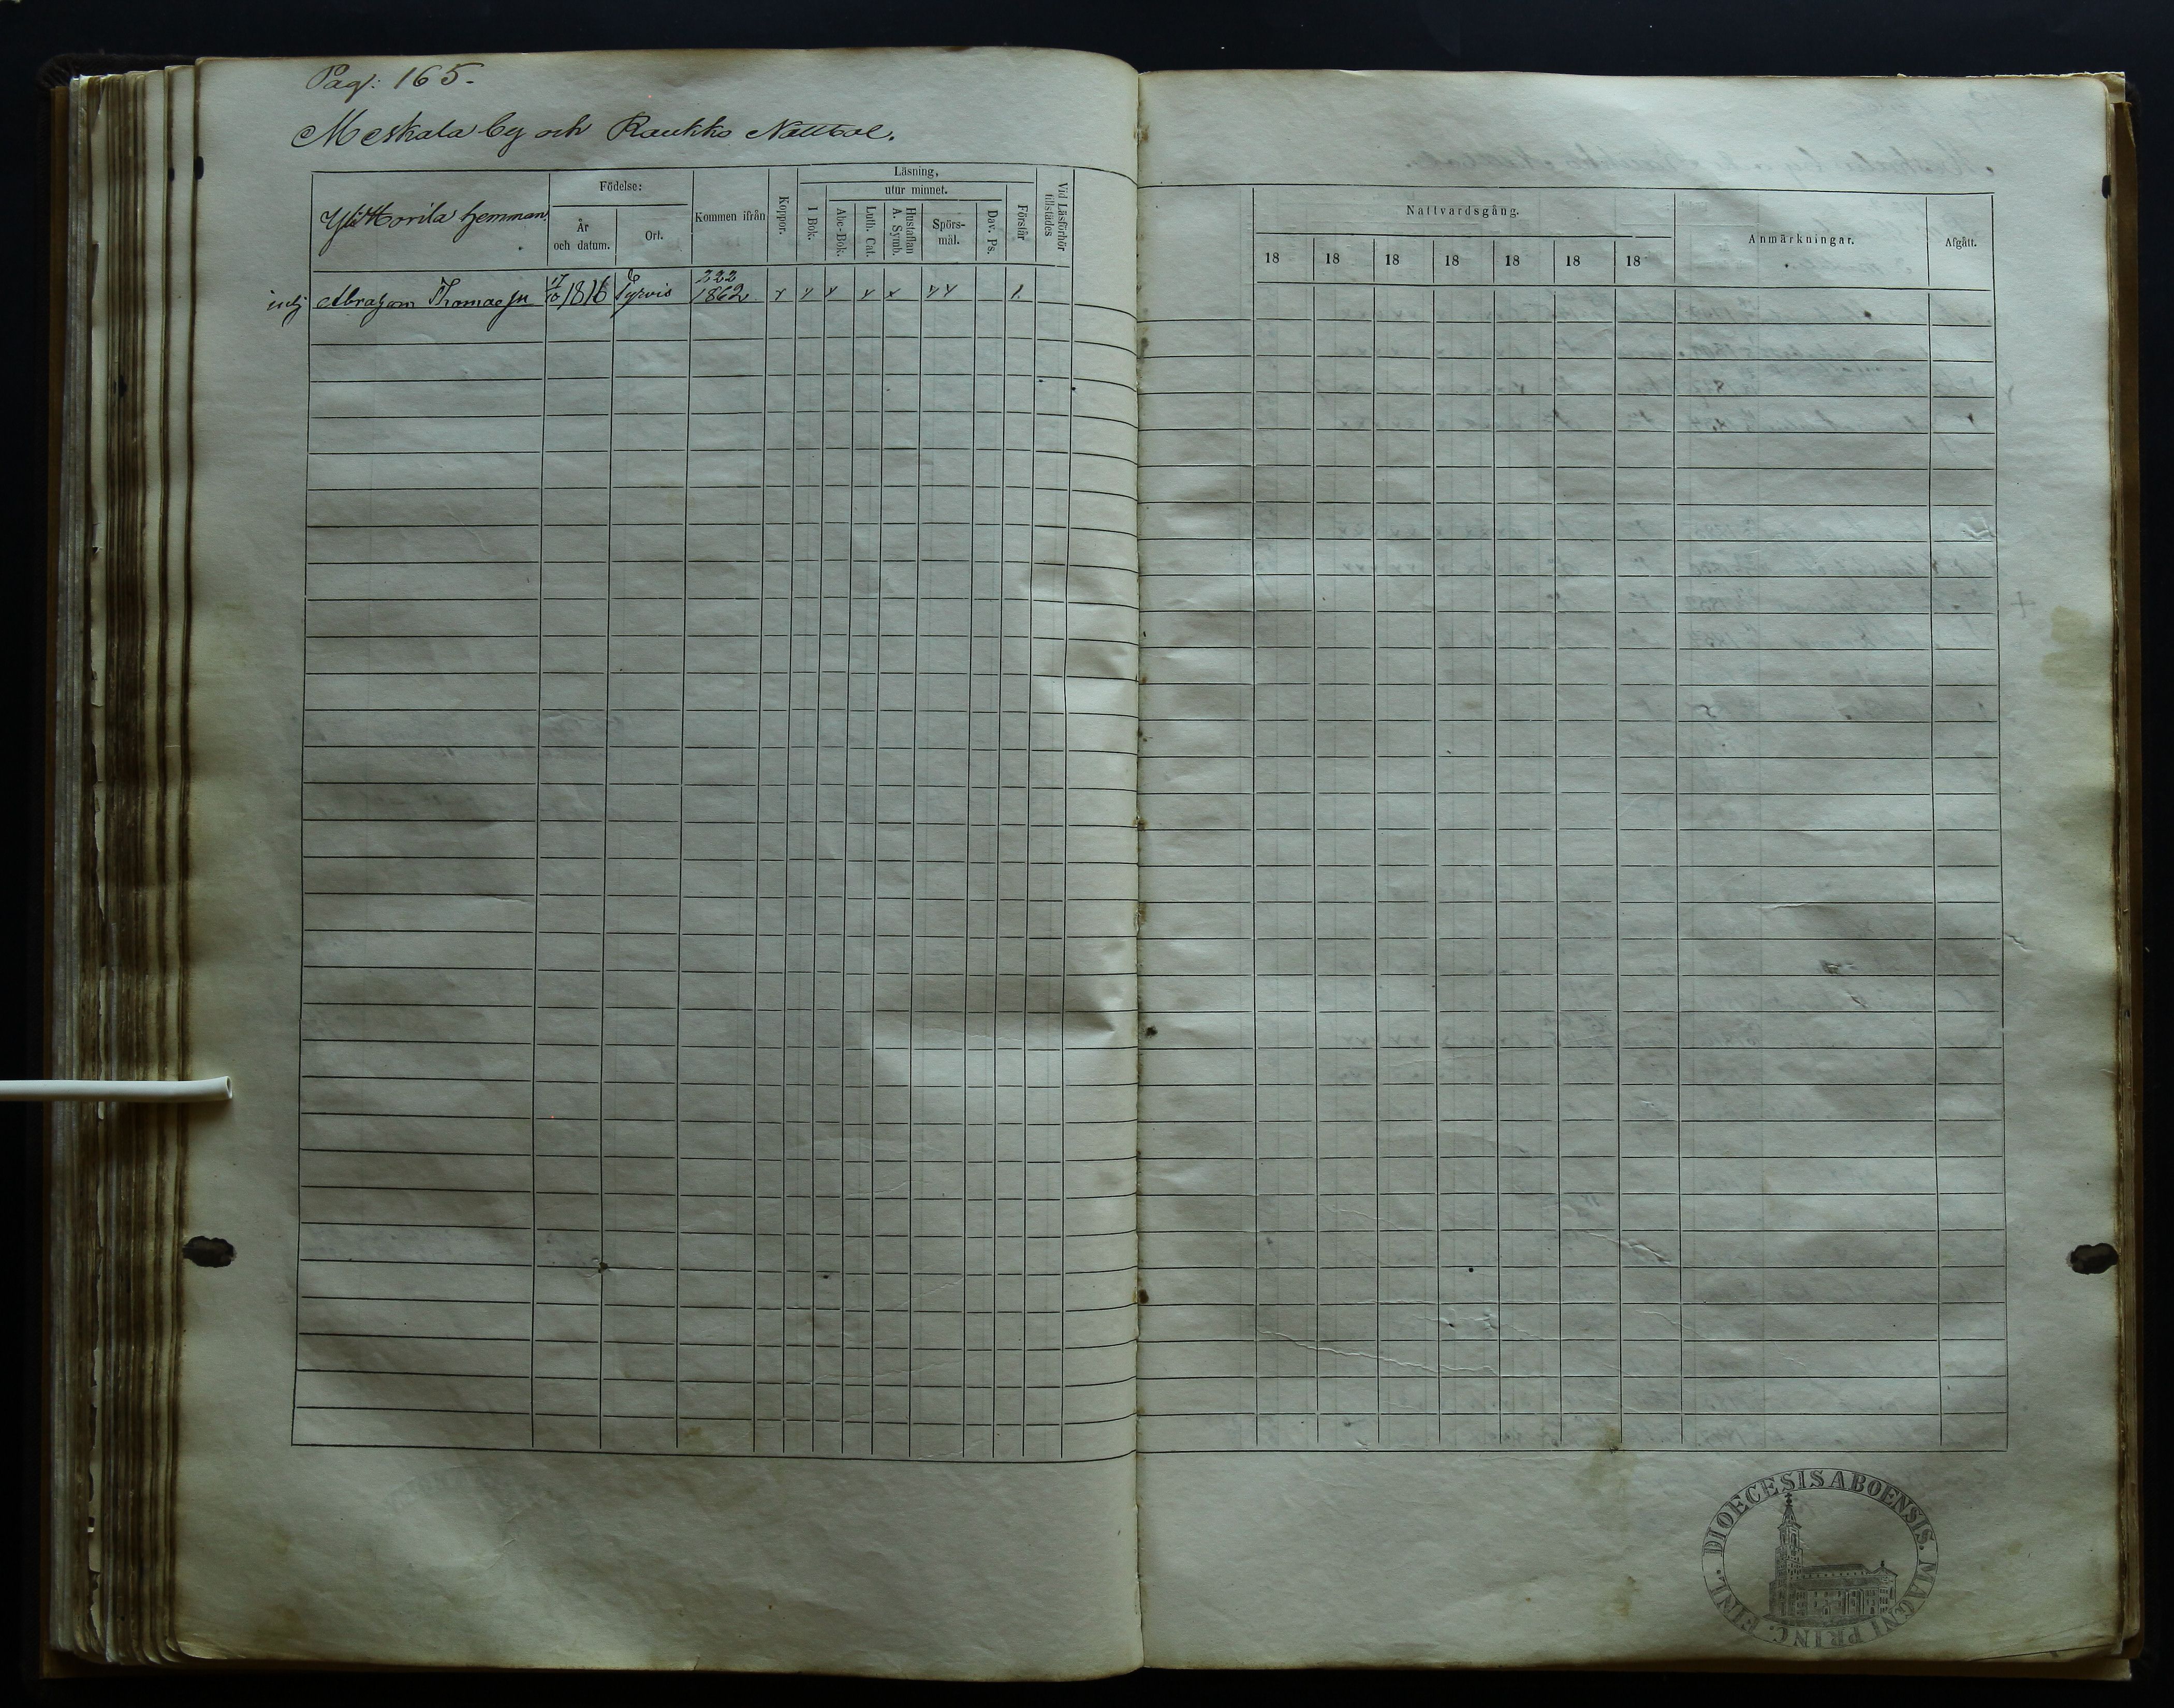 Pag: 165.
Meskala by och Raukko Nattbol.
Yli Horila hemman
Födelse:
År
och datum.
Ort.
Kommen ifrån
Koppor.
Läsning,
utur minnet.
I Bok.
Abc-Bok.
Luth. Cat.
Hustaflan
A. Symb.
Spörs-
mål.
Dav. Ps.
Förstår
Vid Läsförhör
tillstädes
inhj Abraham Thomae sn 17/10 1816 Tyrvis 222 1862 x x x x x x x 1.
Nattvardsgång.
18 18 18 18 18 18 18
Anmärkningar.
Afgått.
DIOECESIS ABOENSIS. MAGNI PRINC. FINL.